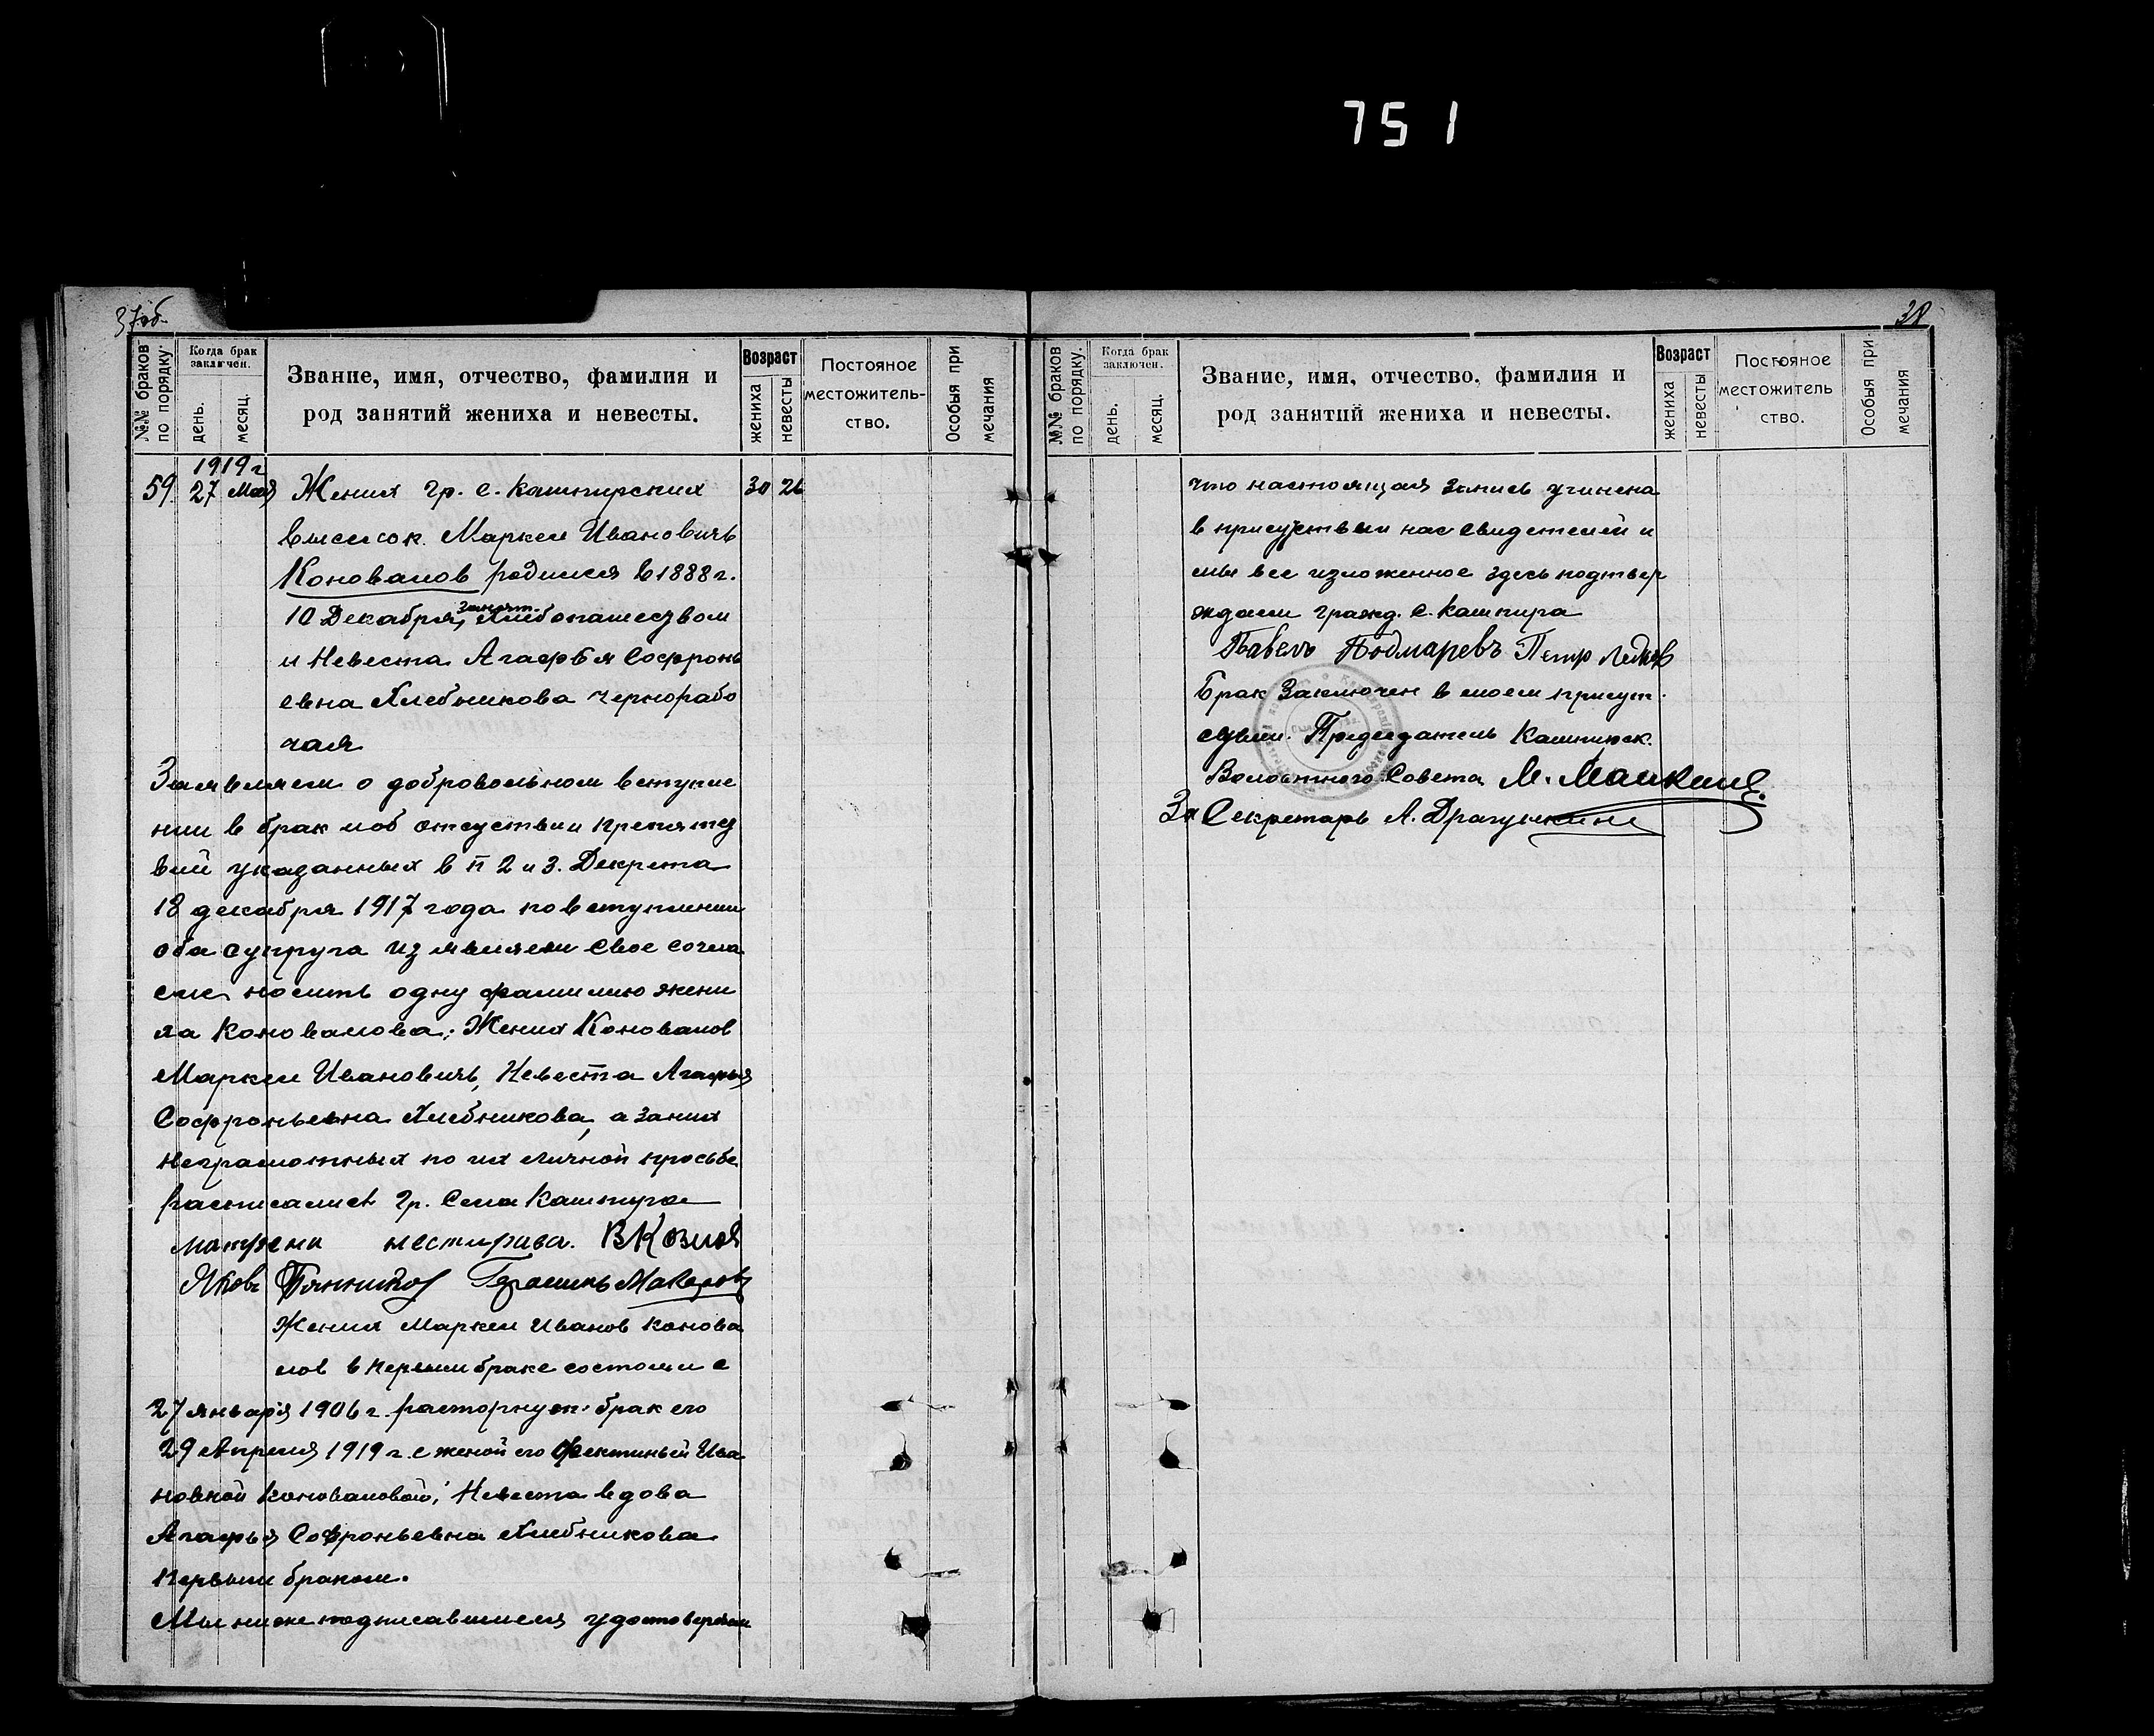 751
37об.
№№ браков по порядку.
Когда брак заключен.
день.
месяц.
Звание, имя, отчество, фамилия и
род занятий жениха и невесты.
Возраст
жениха
невесты
Постояное
местожитель-
ство.
Особыя при
мечания
1919 г
59. 27 Мая Жених гр. с. Кашпирских 30 26
высилок. Маркел Ивановичь
Коновалов родился в 1888 г.
10 Декабря, занят. хлебопашеством
и Невеста Агафья Софронь
евна Хлебникова чернорабо
чая
Заявляем о добровольном вступле
нии в брак и об отсутствии препятст
вий указанных в п 2 и 3. Декрета
18 декабря 1917 года по вступлении
оба супруга изявляем свое согла
сие носить одну фамилию жени
ха Коновалова: Жених Коновалов
Маркел Ивановичь, Невеста Агафья
Софроньевна Хлебникова, а за них
неграмотных по их личной просьбе
расписались гр. Села Кашпира
Матрена В Козлов
Яков Герасимь Макаров
Жених Маркел Иванов Конова
лов в первым браке состоял с
27 января 1906 г. расторгнут брак его
29 Апреля 1919 г. с женой его Фектиньей Ива
новной Коноваловой; Невеста вдова
Агафья Софроньевна Хлебникова
первым браком.
Мы ниже подписавшиеся удостоверяем
38
№№ браков по порядку.
Когда брак заключен.
день.
месяц.
Звание, имя, отчество, фамилия и
род занятий жениха и невесты.
Возраст
жениха
невесты
Постояное
местожитель
ство.
Особыя при
мечания
что настоящая запись учинена
в присутствии нас свидетелей и
мы все изложенное здесь подтвер
ждаем гражд. с. Кашпира
Павелъ Подмаревъ Петр
Брак заключен в моем присут.
ствии. Председатель Кашпирск.
Волостного Совета М. Малкин
За Секретарь А. Драгункин